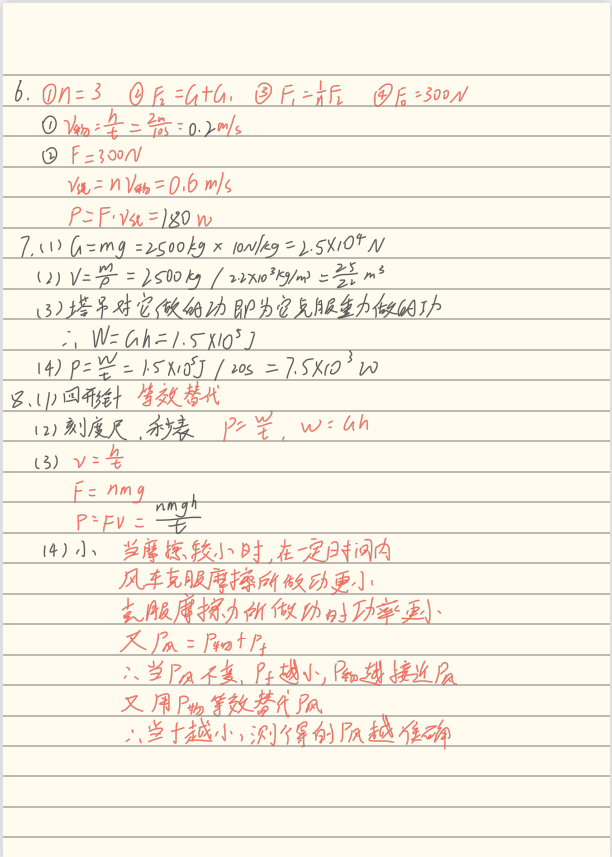 6. ①n=3 ②F₂=G+G₁ ③F₁=1/n F₂ ④F₀=300N
① V物=h/t=2m/10s=0.2m/s
② F=300N
V绳=nV物=0.6m/s
P=F·V绳=180w
7.(1) G=mg=2500kg×10N/kg=2.5×10⁴N
(2) V=m/ρ=2500kg/2.2×10³kg/m³=25/22 m³
(3)塔吊对它做的功即为它克服重力做的功
∴ W=Gh=1.5×10⁵J
(4) P=W/t=1.5×10⁵J/20s=7.5×10³W
8.(1)回形针 等效替代
(2)刻度尺、秒表 P=W/t, W=Gh
(3) v=h/t
F=nmg
P=FV=nmgh/t
(4)小 当摩擦较小时,在一定时间内
风车克服摩擦所做功更小
克服摩擦力所做功的功率更小
又P风=P物+Pf
∴当P风不变,Pf越小,P物越接近P风
又用P物等效替代P风
∴当f越小,测得的P风越准确